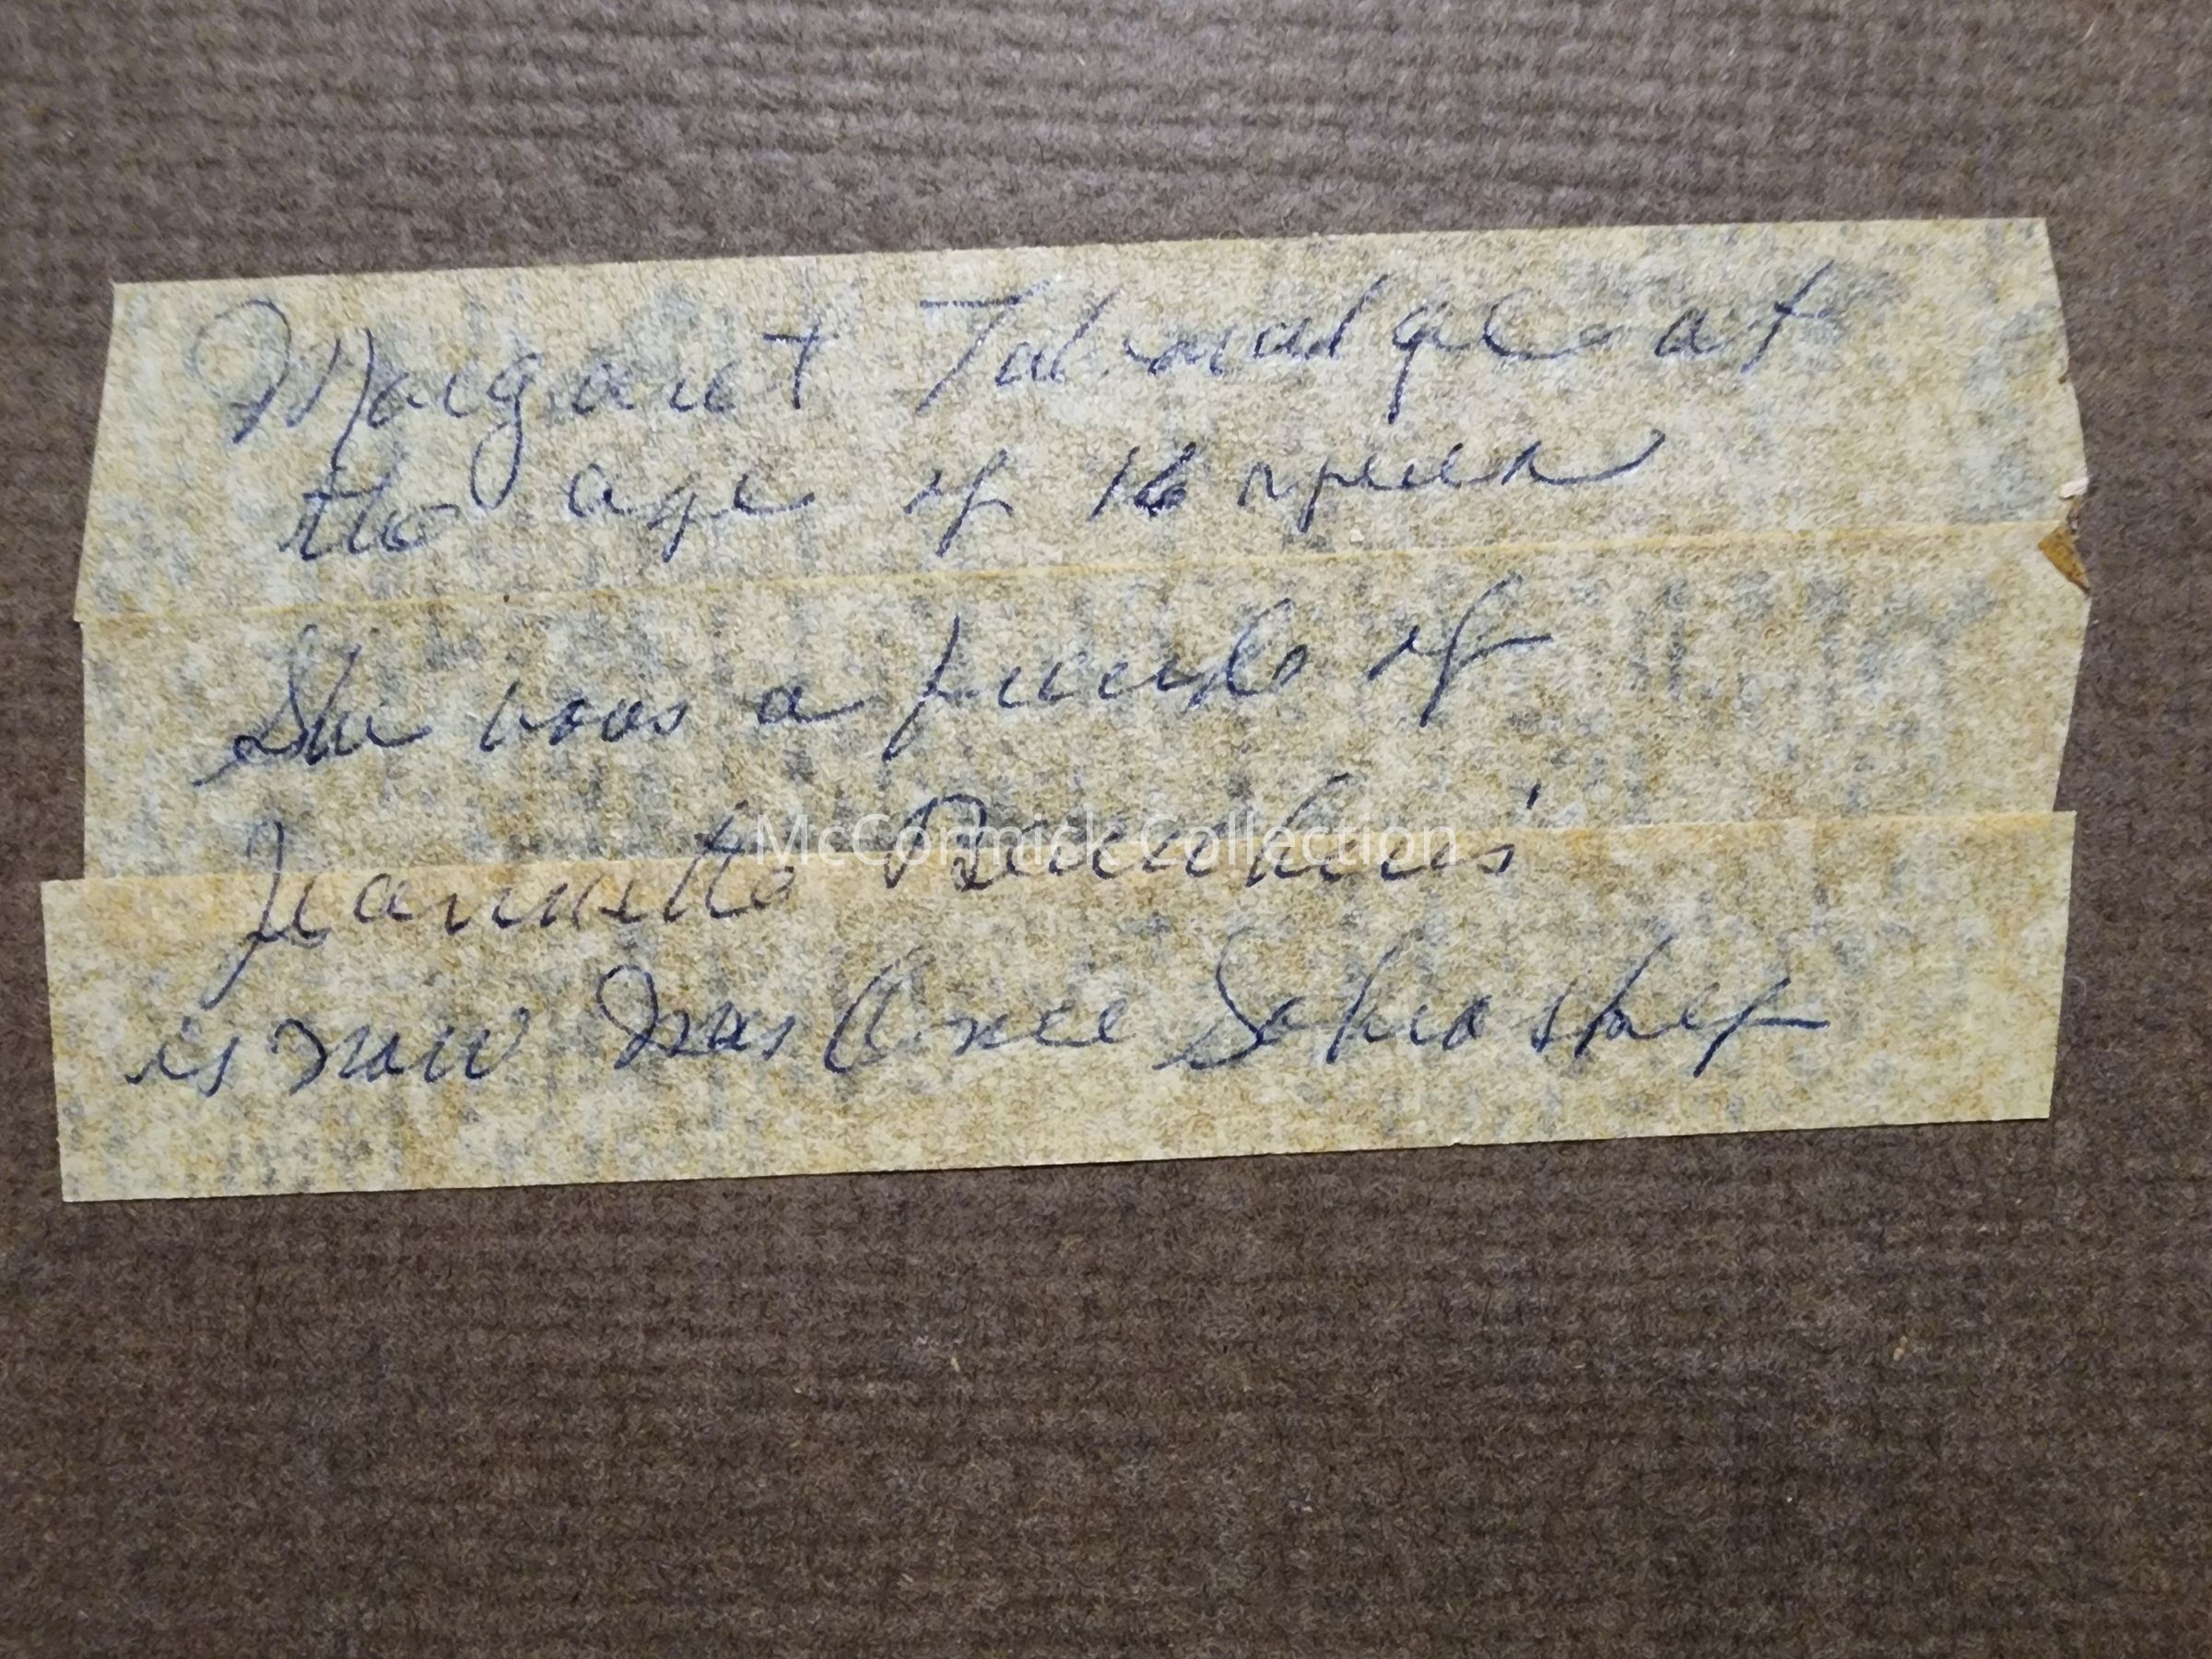 Margaret Talmadge at
the age of 16 years
She was a friend of
Jeannette
McCormick Collection
is now Mrs